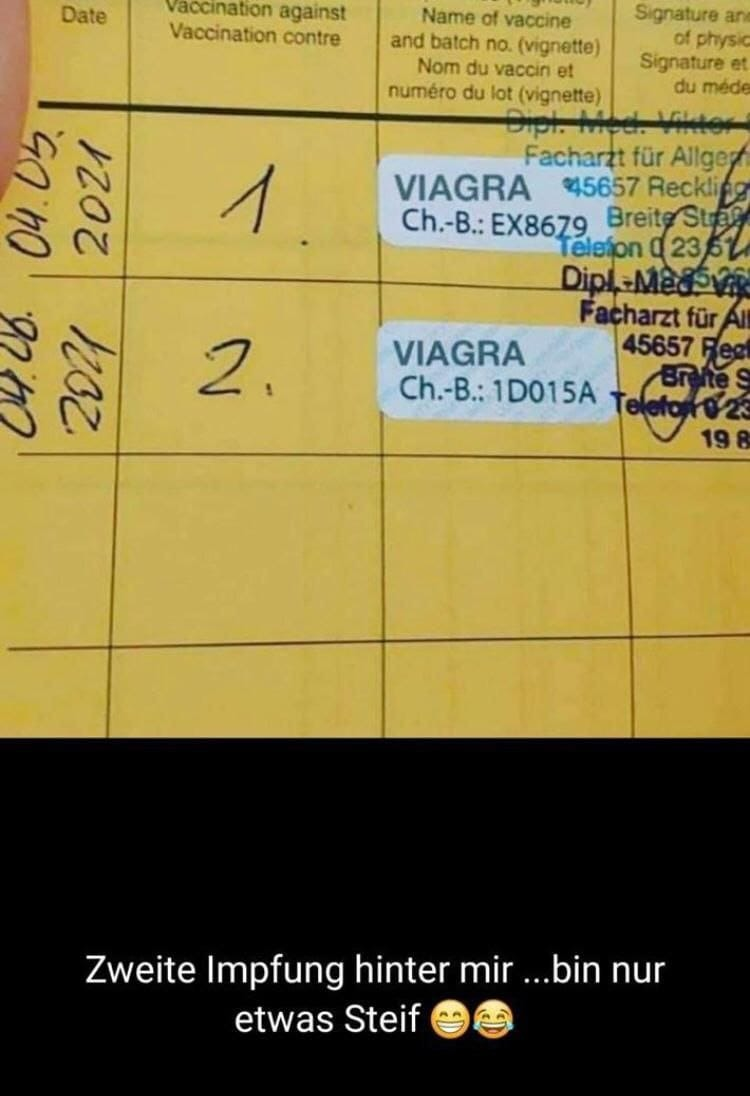 Date
Vaccination against
Vaccination contre
Name of vaccine
and batch no. (vignette)
Nom du vaccin et
numéro du lot (vignette)
Signature
of
Signature et
du
04.05.
2021
1.
VIAGRA
Ch.-B.: EX8679
Dipl. Med. Viktor
Facharzt für
45657
Breite
Telefon 0
04.06.
2021
2.
VIAGRA
Ch.-B.: 1D015A
Dipl.-Med.
Facharzt für
45657
Breite S
Telefon 0 23
19 8
Zweite Impfung hinter mir ...bin nur
etwas Steif 😁😂